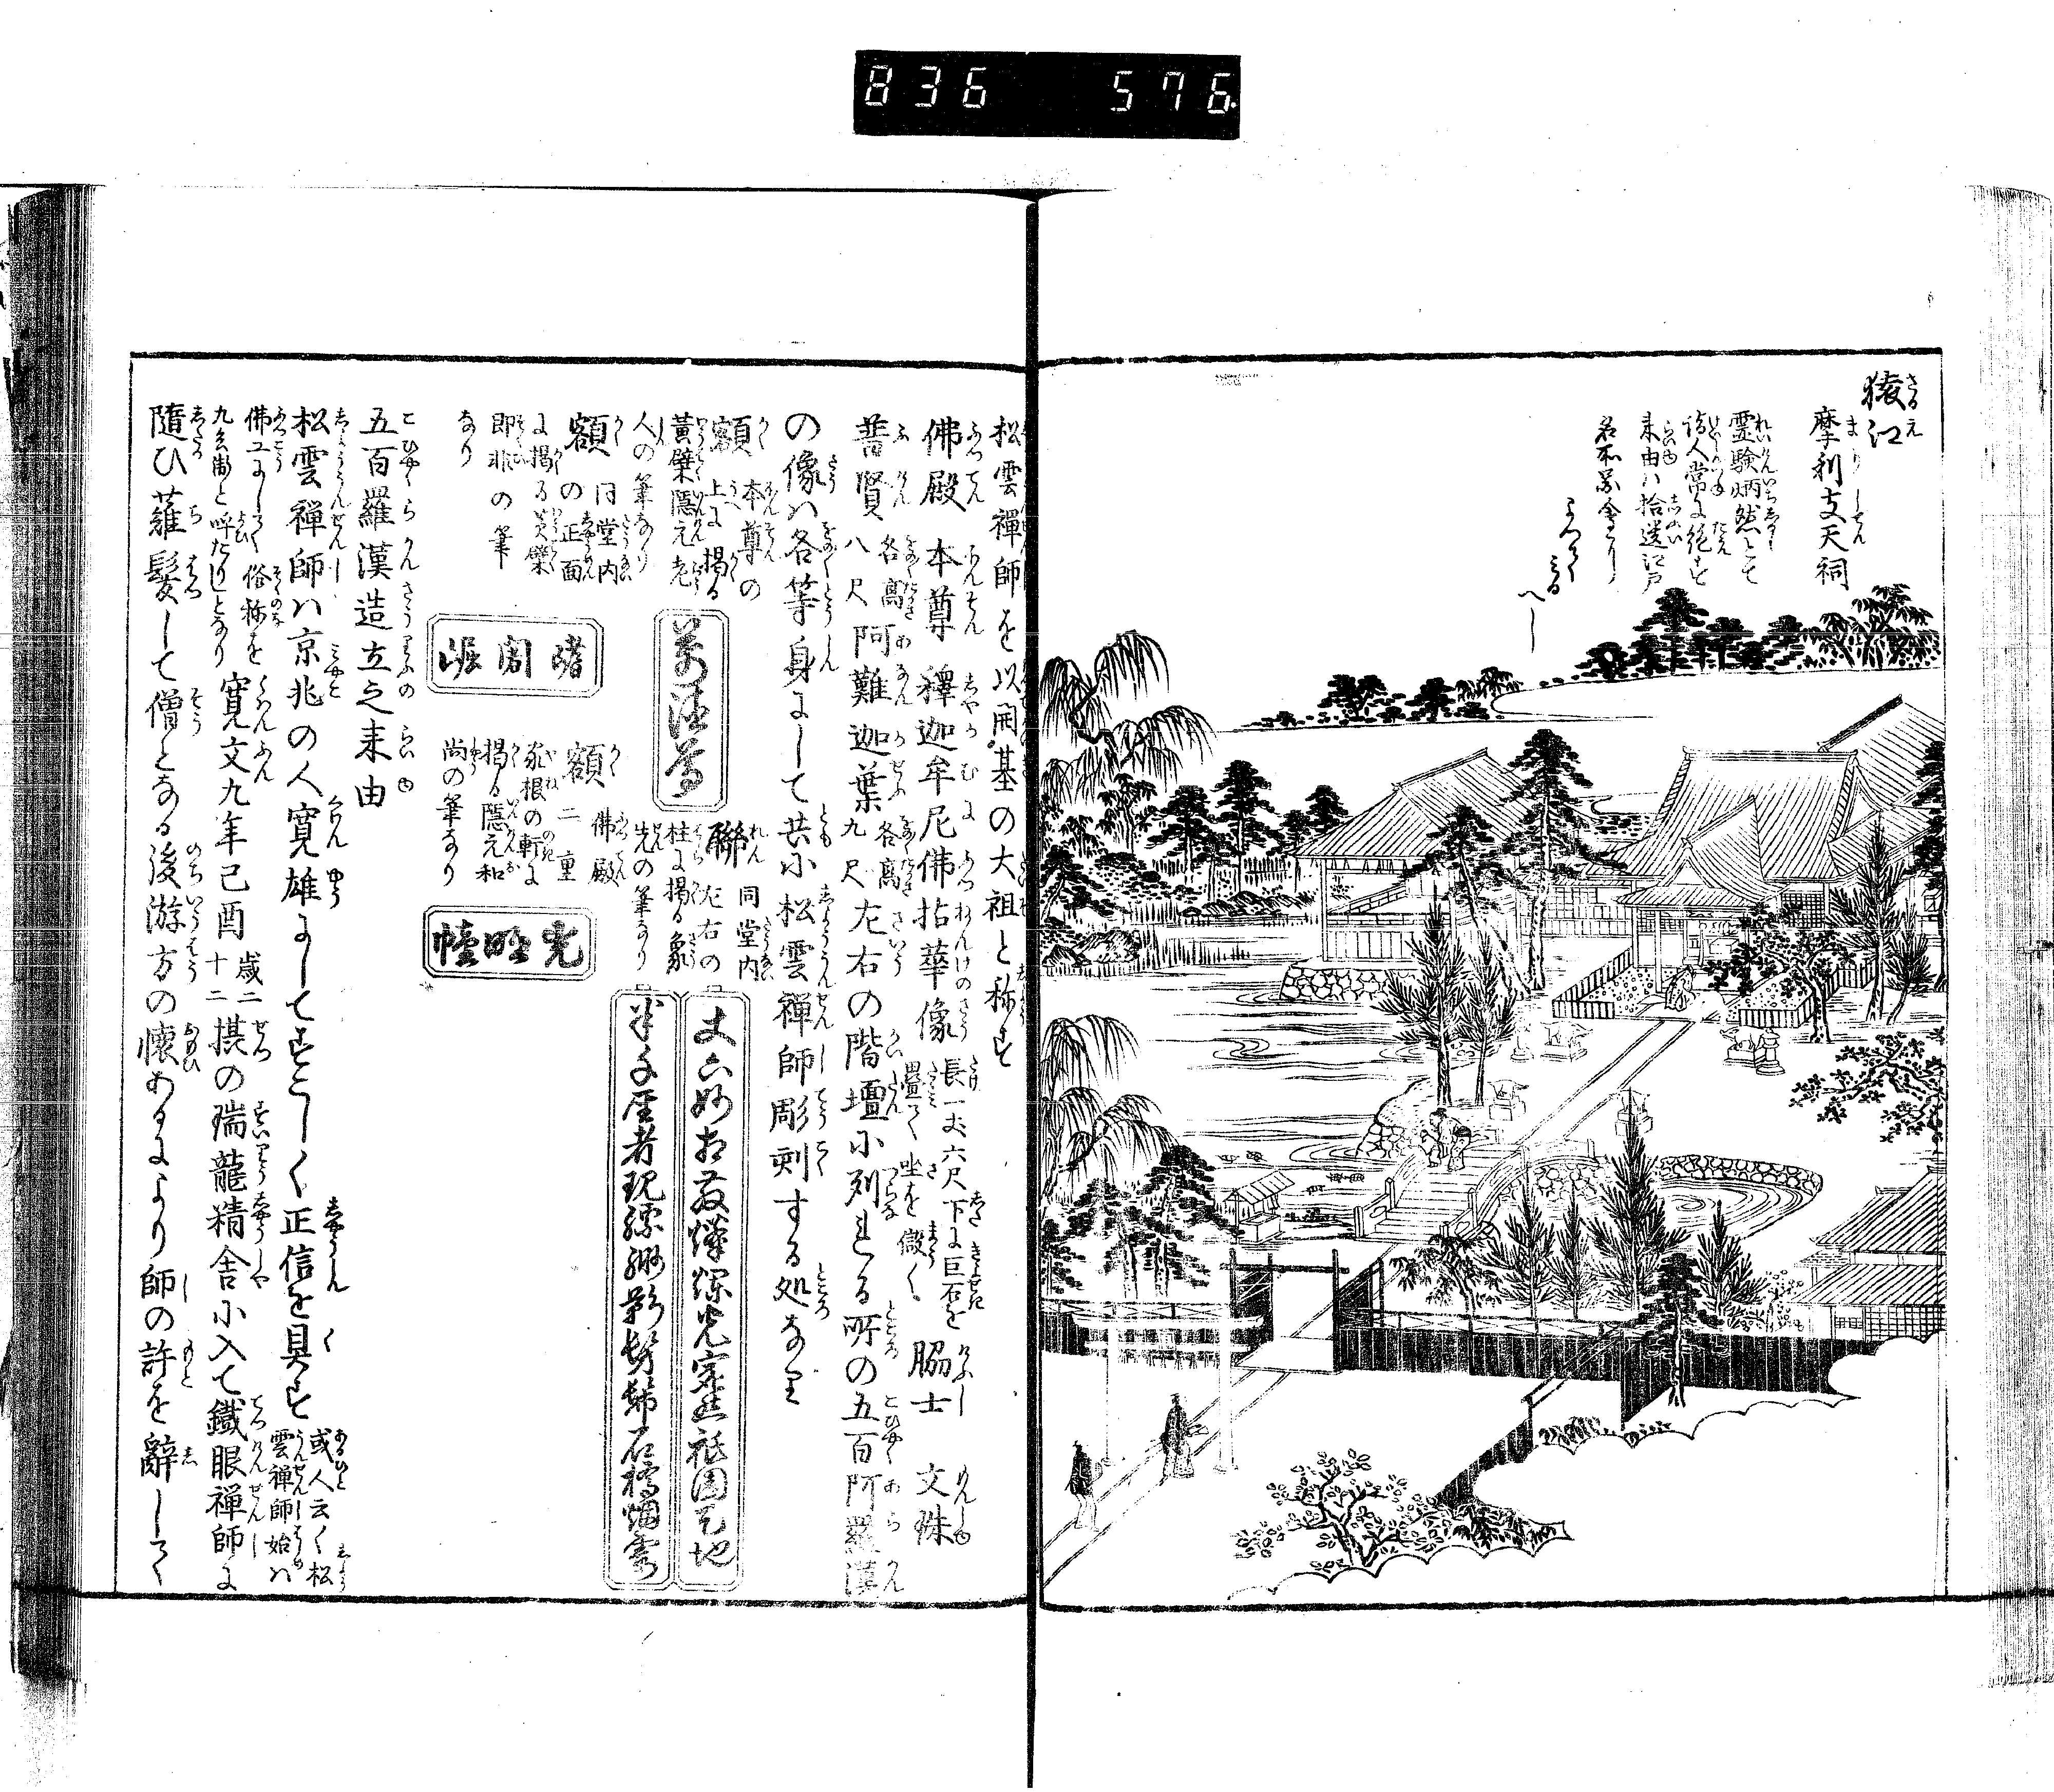 836 576
猿江
さるえ
摩利支天祠
まりしてん
霊験炳然とて
詣人常に絶す
来由ハ拾遺江戸
名所図会に
みる
へし
松雲禅師を以開基の大祖と称す
佛殿 本尊 釋迦牟尼佛拈華像 長一丈六尺下に巨石を畳て坐を儼く 脇士 文殊
普賢 各高八尺 阿難迦葉 各高九尺 左右の階壇に列る所の五百阿羅漢
の像ハ各等身にして共に松雲禅師彫刻する処なり
額 本尊の上に掲る
黄檗隠元老
人の筆なり
萬徳尊
聯 同堂内左右の
柱に掲る
先の筆なり
丈六妙相
祇園天地
半千尊者現
影
石橋烟雲
額 同堂内の正面
に掲る黄檗
即非の筆
なり
耆闍崛
額 二重
佛殿
家根の軒に
掲る隠元和
尚の筆なり
光明幢
五百羅漢造立之来由
ごひやくらかんざうりふのらいゆ
松雲禅師ハ京兆の人寛雄にしてすこしく正信を具す 或人云く松雲禅師始ハ
佛工にして俗称を九兵衛と呼たりしとなり 寛文九年己酉 歳二十二 摂の瑞龍精舎に入て鐵眼禅師に
随ひ薙髪して僧となる後游方の懐あるにより師の許を辞して